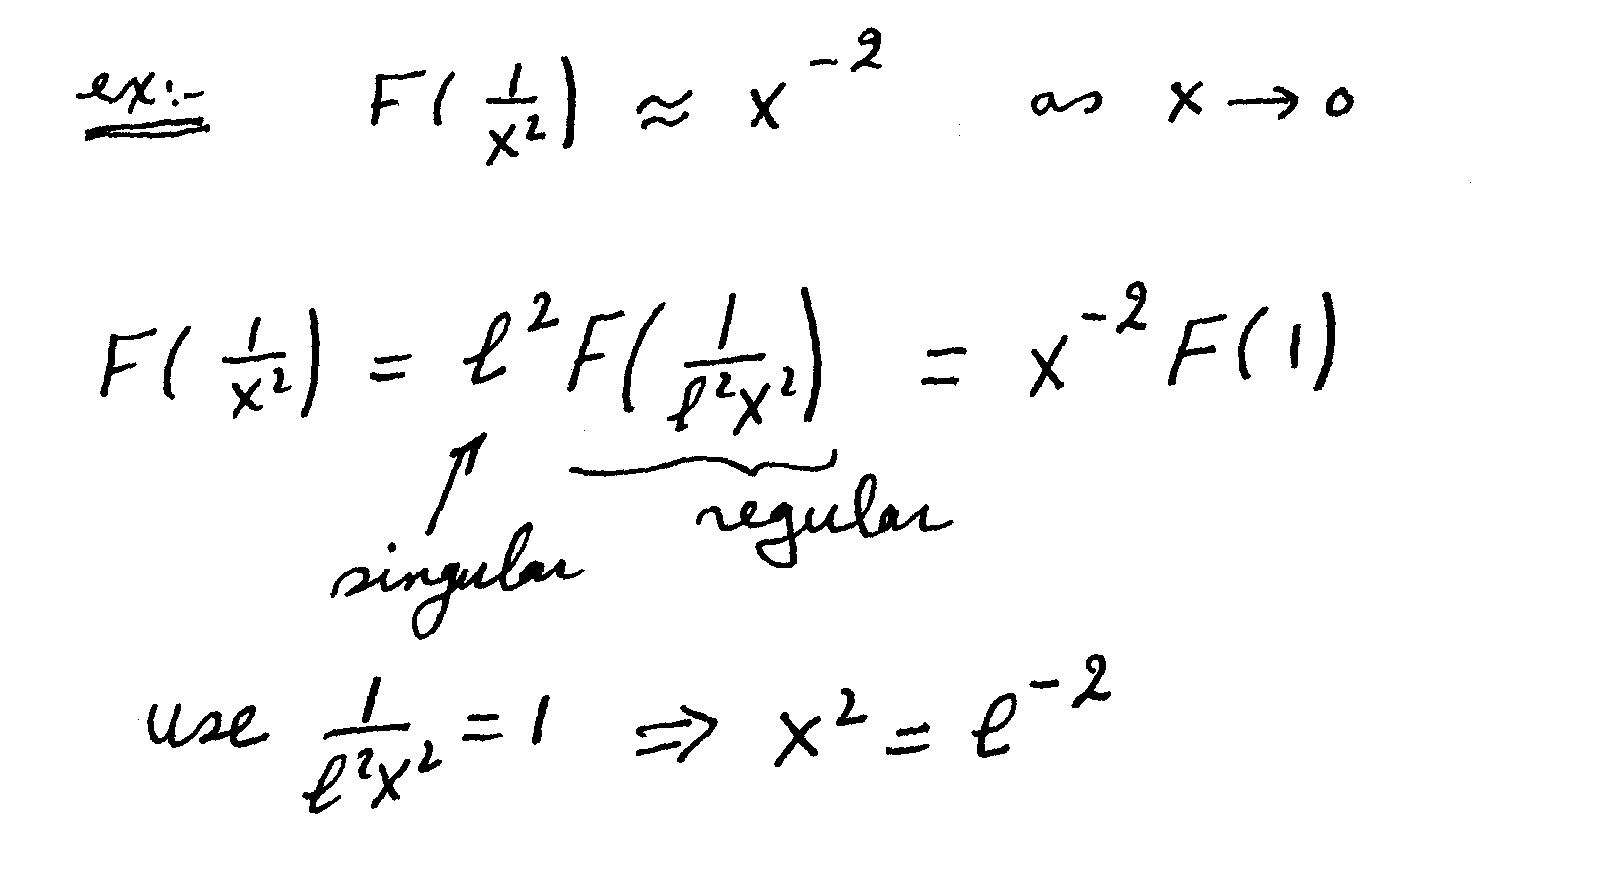 ex:- F(1/x²) ≈ x⁻² as x → 0
F(1/x²) = ℓ² F(1/ℓ²x²) = x⁻² F(1)
singular regular
use 1/ℓ²x² = 1 ⇒ x² = ℓ⁻²